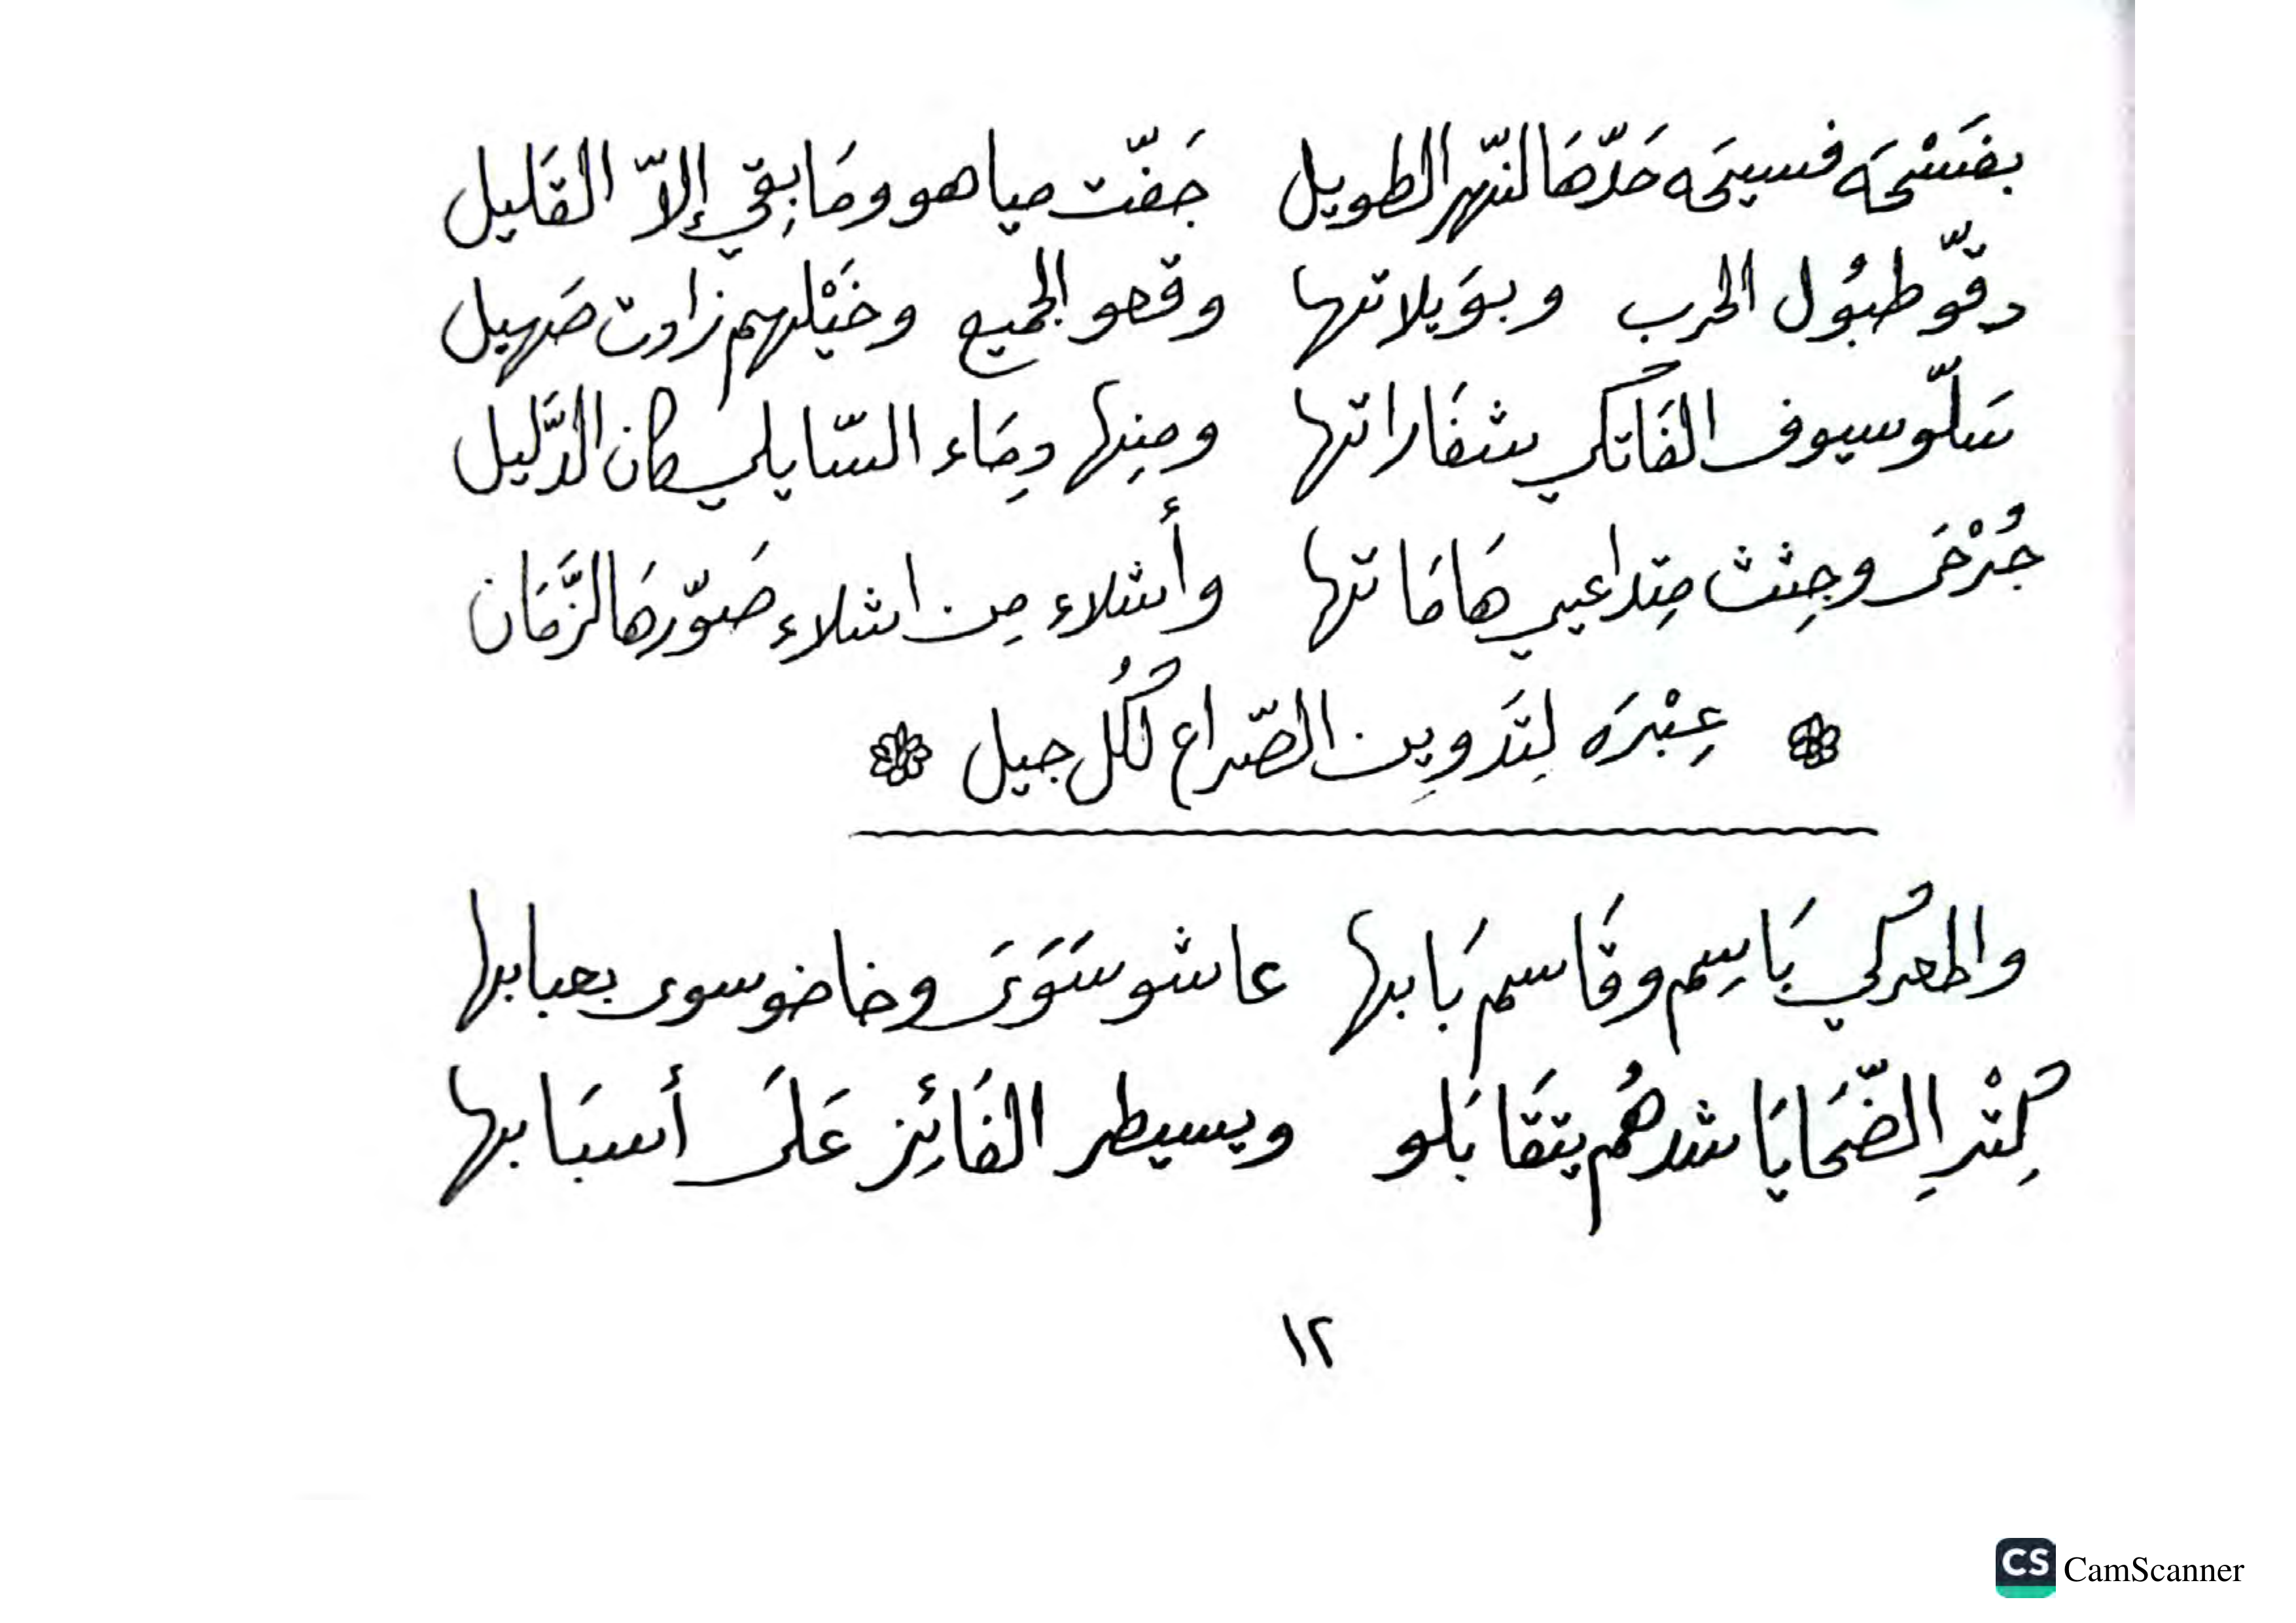 بفَسْحَه فسيحَه حَدّهَا لنّهر الطويل جَفّت مياهو ومَا بِقي إلاّ القَليل
دقّو طبُول الحرب وبوَيلاتها وقعو الجميع وخَيْلهم زادت صَهيل
سَلّو سيوف الفَاتكي بشفَاراتها ومِنها دِمَاء السّايلي كان الدَّليل
جُرْحَى وجِثث مِتداعيي هَامَاتها وأشلاء مِن اشلاء صَوّرهَا لزَّمَان
عِبْرَه لِتَدوِين الصّراع لكُل جيل
والمعركي بَاسِم وقَاسم بَابها عاشو سَوَى وخاضو سوى بعبابها
كِتْرِ الضّحَايَا شدهُم يتقَابَلو ويسيطر الفَائِز عَلَى أسبَابها
١٢
CS CamScanner